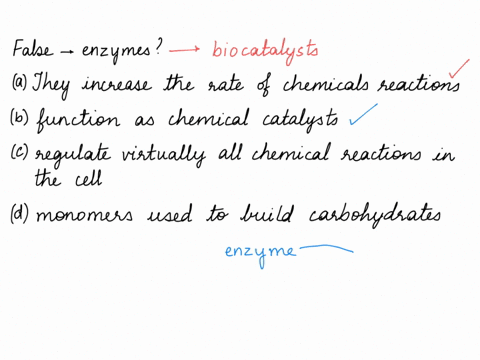 False → enzymes? → biocatalysts
(a) They increase the rate of chemicals reactions
(b) function as chemical catalysts
(c) regulate virtually all chemical reactions in
the cell
(d) monomers used to build carbohydrates
enzyme